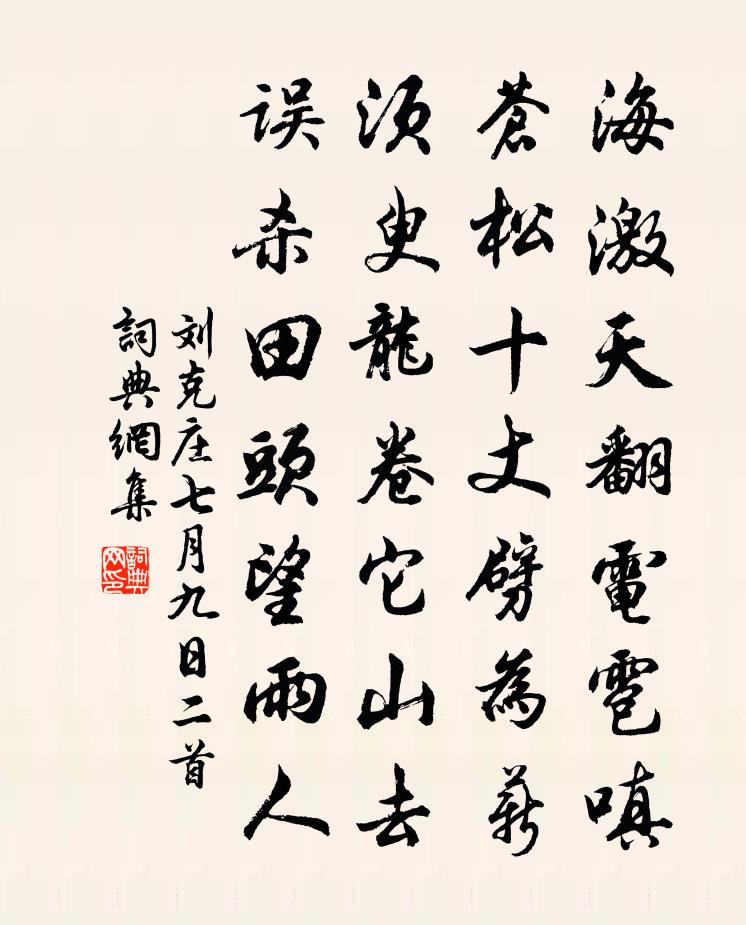 海激天翻電雹嗔
蒼松十丈劈為薪
須臾龍卷它山去
误杀田頭望雨人
刘克庄七月九日二首
詞典網集
詞典网印